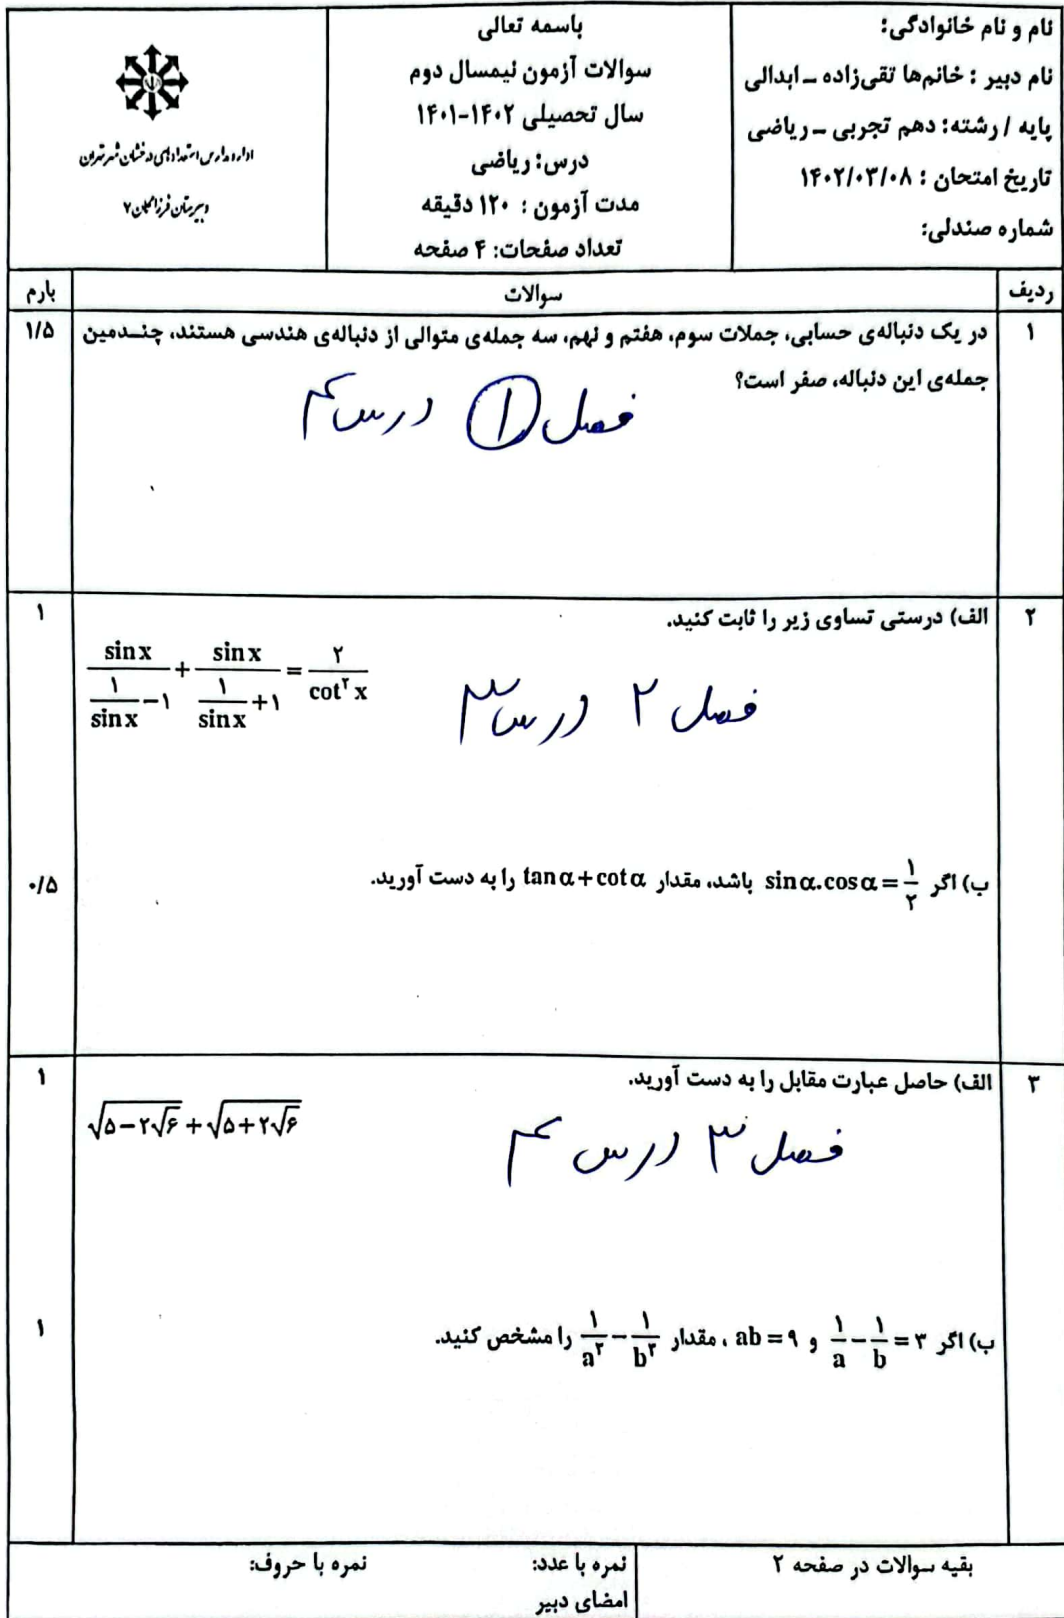 نام و نام خانوادگی:
نام دبیر : خانم‌ها تقی‌زاده ـ ابدالی
پایه / رشته: دهم تجربی ـ ریاضی
تاریخ امتحان : ۱۴۰۲/۰۳/۰۸
شماره صندلی:
باسمه تعالی
سوالات آزمون نیمسال دوم
سال تحصیلی ۱۴۰۲-۱۴۰۱
درس: ریاضی
مدت آزمون : ۱۲۰ دقیقه
تعداد صفحات: ۴ صفحه
اداره مدارس استعدادهای درخشان شهر تهران
دبیرستان فرزانگان ۷
ردیف سوالات بارم
۱ در یک دنباله‌ی حسابی، جملات سوم، هفتم و نهم، سه جمله‌ی متوالی از دنباله‌ی هندسی هستند، چنـدمین ۱/۵
جمله‌ی این دنباله، صفر است؟
فصل ۱ درس ۴
۲ الف) درستی تساوی زیر را ثابت کنید. ۱
sin x / (۱/sin x − ۱) + sin x / (۱/sin x + ۱) = ۲/cot² x
فصل ۲ درس ۳
ب) اگر sin α . cos α = ۱/۲ باشد، مقدار tan α + cot α را به دست آورید. ۰/۵
۳ الف) حاصل عبارت مقابل را به دست آورید. ۱
√(۵−۲√۶) + √(۵+۲√۶)
فصل ۳ درس ۴
ب) اگر ۱/a − ۱/b = ۳ و ab = ۹ ، مقدار ۱/a³ − ۱/b³ را مشخص کنید. ۱
بقیه سوالات در صفحه ۲
نمره با عدد: نمره با حروف:
امضای دبیر